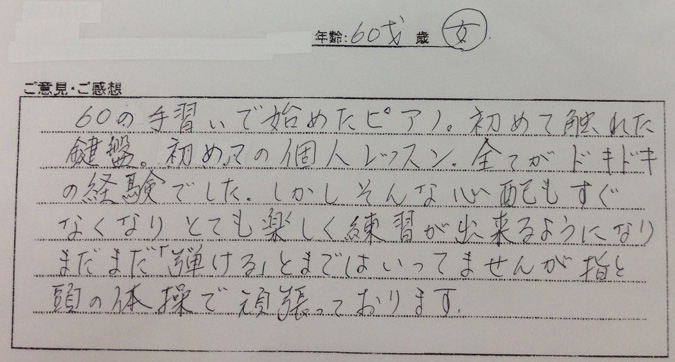 年齢:60才 歳 女
ご意見・ご感想
60の手習いで始めたピアノ。初めて触れた
鍵盤。初めての個人レッスン。全てがドキドキ
の経験でした。しかしそんな心配もすぐ
なくなりとても楽しく練習が出来るようになり
まだまだ「弾ける」とまではいってませんが指と
頭の体操で頑張っております。